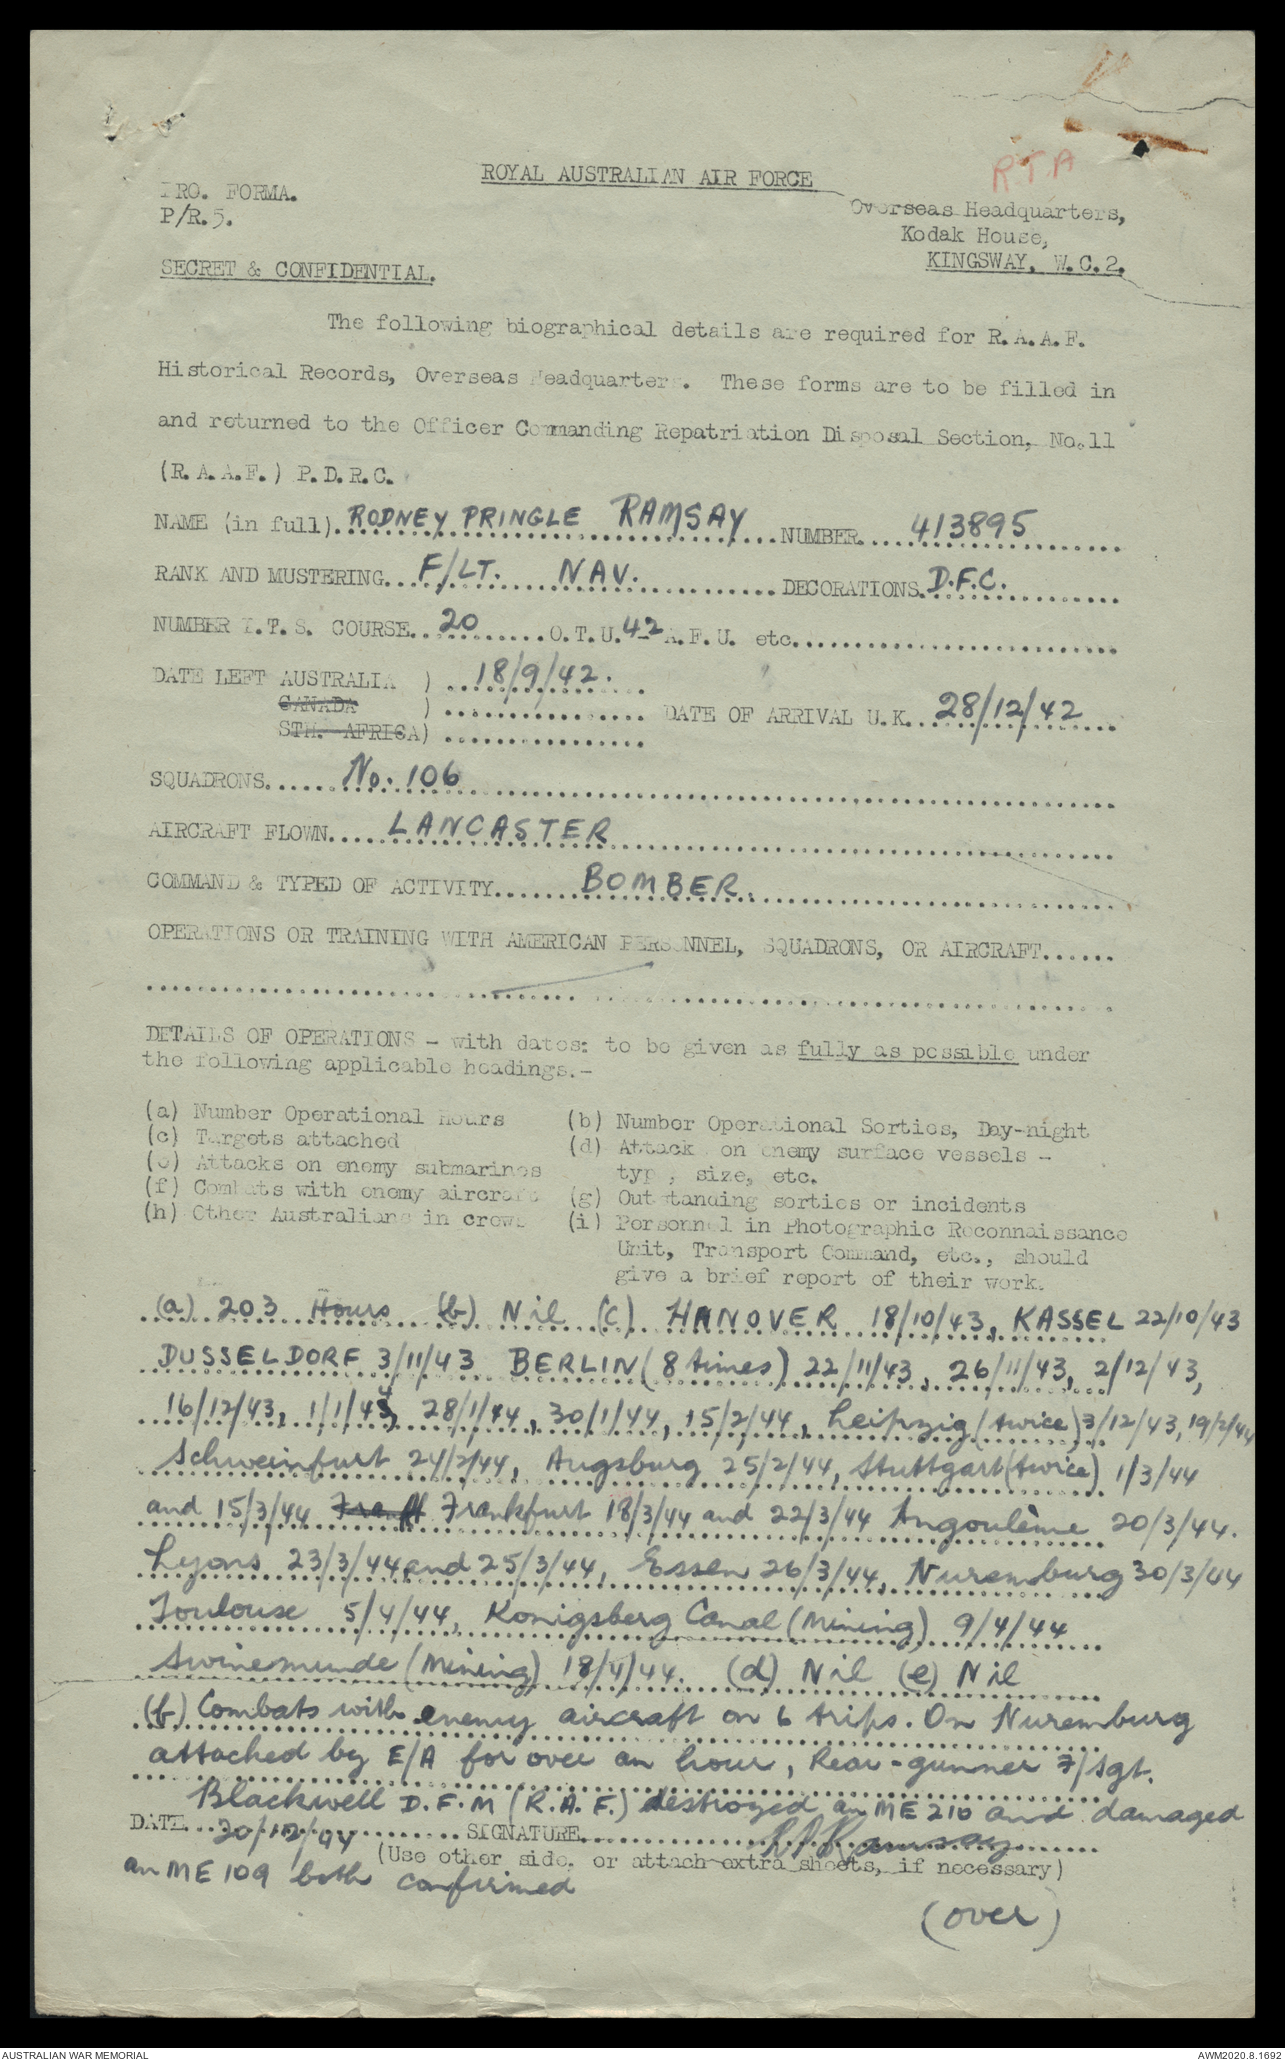 RTA
ROYAL AUSTRALIAN AIR FORCE
PRO. FORMA.
P/R.5.
Overseas Headquarters,
Kodak House,
KINGSWAY, W.C.2.
SECRET & CONFIDENTIAL.
The following biographical details are required for R.A.A.F.
Historical Records, Overseas Headquarters. These forms are to be filled in
and returned to the Officer Commanding Repatriation Disposal Section, No.11
(R.A.A.F.) P.D.R.C.
NAME (in full). RODNEY PRINGLE RAMSAY NUMBER 413895
RANK AND MUSTERING F/LT. NAV. DECORATIONS D.F.C.
NUMBER I.T.S. COURSE 20 O.T.U. 42 A.F.U. etc.
DATE LEFT AUSTRALIA ) 18/9/42.
CANADA )
DATE OF ARRIVAL U.K. 28/12/42
STH. AFRICA)
SQUADRONS No. 106
AIRCRAFT FLOWN LANCASTER
COMMAND & TYPED OF ACTIVITY BOMBER.
OPERATIONS OR TRAINING WITH AMERICAN PERSONNEL, SQUADRONS, OR AIRCRAFT
DETAILS OF OPERATIONS - with dates: to be given as fully as possible under
the following applicable headings.-
(a) Number Operational Hours (b) Number Operational Sorties, Day-night
(c) Targets attached (d) Attack on enemy surface vessels -
(e) Attacks on enemy submarines type, size, etc.
(f) Combats with enemy aircraft (g) Outstanding sorties or incidents
(h) Other Australians in crews (i) Personnel in Photographic Reconnaissance
Unit, Transport Command, etc., should
give a brief report of their work.
(a) 203 Hours (b) Nil (c) HANOVER 18/10/43, KASSEL 22/10/43
DUSSELDORF 3/11/43 BERLIN (8 times) 22/11/43, 26/11/43, 2/12/43,
16/12/43, 1/1/44, 28/1/44, 30/1/44, 15/2/44, Leipzig (twice) 3/12/43, 19/2/44
Schweinfurt 24/2/44, Augsburg 25/2/44, Stuttgart (twice) 1/3/44
and 15/3/44 Franff Frankfurt 18/3/44 and 22/3/44 Angoulème 20/3/44.
Lyons 23/3/44 and 25/3/44, Essen 26/3/44, Nuremburg 30/3/44
Toulouse 5/4/44, Konigsberg Canal (Mining) 9/4/44
Swinemunde (Mining) 18/4/44. (d) Nil (e) Nil
(f) Combats with enemy aircraft on 6 trips. On Nuremburg
attacked by E/A for over an hour, Rear-gunner F/Sgt.
Blackwell D.F.M (R.A.F.) destroyed an ME 210 and damaged
DATE 20/12/44 SIGNATURE R P Ramsay
(Use other side, or attach extra sheets, if necessary)
an ME 109 both confirmed
(over)
AUSTRALIAN WAR MEMORIAL
AWM2020.8.1692